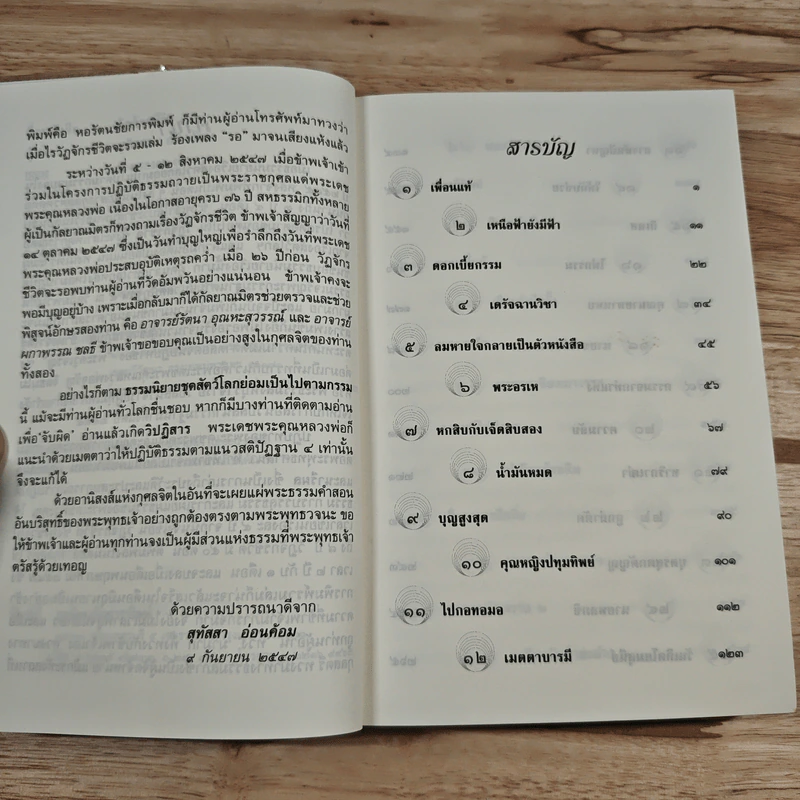 พิมพ์คือ หอรัตนชัยการพิมพ์ ก็มีท่านผู้อ่านโทรศัพท์มาทวงว่า
เมื่อไรวัฏจักรชีวิตจะรวมเล่ม ร้องเพลง "รอ" มาจนเสียงแห้งแล้ว
ระหว่างวันที่ ๕ - ๑๒ สิงหาคม ๒๕๔๗ เมื่อข้าพเจ้าเข้า
ร่วมในโครงการปฏิบัติธรรมถวายเป็นพระราชกุศลแด่พระเดช
พระคุณหลวงพ่อ เนื่องในโอกาสอายุครบ ๗๖ ปี สหธรรมิกทั้งหลาย
ผู้เป็นกัลยาณมิตรก็ทวงถามเรื่องวัฏจักรชีวิต ข้าพเจ้าสัญญาว่าวันที่
๑๔ ตุลาคม ๒๕๔๗ ซึ่งเป็นวันทำบุญใหญ่เพื่อรำลึกถึงวันที่พระเดช
พระคุณหลวงพ่อประสบอุบัติเหตุรถคว่ำ เมื่อ ๒๖ ปีก่อน วัฏจักร
ชีวิตจะรอพบท่านผู้อ่านที่วัดอัมพวันอย่างแน่นอน ข้าพเจ้าคงจะ
พอมีบุญอยู่บ้าง เพราะเมื่อกลับมาก็ได้กัลยาณมิตรช่วยตรวจและช่วย
พิสูจน์อักษรสองท่าน คือ อาจารย์รัตนา อุณหะสุวรรณ์ และ อาจารย์
ผกาพรรณ ชลธี ข้าพเจ้าขอขอบคุณเป็นอย่างสูงในกุศลจิตของท่าน
ทั้งสอง
อย่างไรก็ตาม ธรรมนิยายชุดสัตว์โลกย่อมเป็นไปตามกรรม
นี้ แม้จะมีท่านผู้อ่านทั่วโลกชื่นชอบ หากก็มีบางท่านที่ติดตามอ่าน
เพื่อ'จับผิด' อ่านแล้วเกิดวิปฏิสาร พระเดชพระคุณหลวงพ่อก็
แนะนำด้วยเมตตาว่าให้ปฏิบัติธรรมตามแนวสติปัฏฐาน ๔ เท่านั้น
จึงจะแก้ได้
ด้วยอานิสงส์แห่งกุศลจิตในอันที่จะเผยแผ่พระธรรมคำสอน
อันบริสุทธิ์ของพระพุทธเจ้าอย่างถูกต้องตรงตามพระพุทธวจนะ ขอ
ให้ข้าพเจ้าและผู้อ่านทุกท่านจงเป็นผู้มีส่วนแห่งธรรมที่พระพุทธเจ้า
ตรัสรู้ด้วยเทอญ
ด้วยความปรารถนาดีจาก
สุทัสสา อ่อนค้อม
๙ กันยายน ๒๕๔๗
สารบัญ
๑ เพื่อนแท้ ๑
๒ เหนือฟ้ายังมีฟ้า ๑๑
๓ ดอกเบี้ยกรรม ๒๒
๔ เดรัจฉานวิชา ๓๔
๕ ลมหายใจกลายเป็นตัวหนังสือ ๔๕
๖ พระอรเห ๕๖
๗ หกสิบกับเจ็ดสิบสอง ๖๗
๘ น้ำมันหมด ๗๙
๙ บุญสูงสุด ๙๐
๑๐ คุณหญิงปทุมทิพย์ ๑๐๑
๑๑ ไปกอทอมอ ๑๑๒
๑๒ เมตตาบารมี ๑๒๓